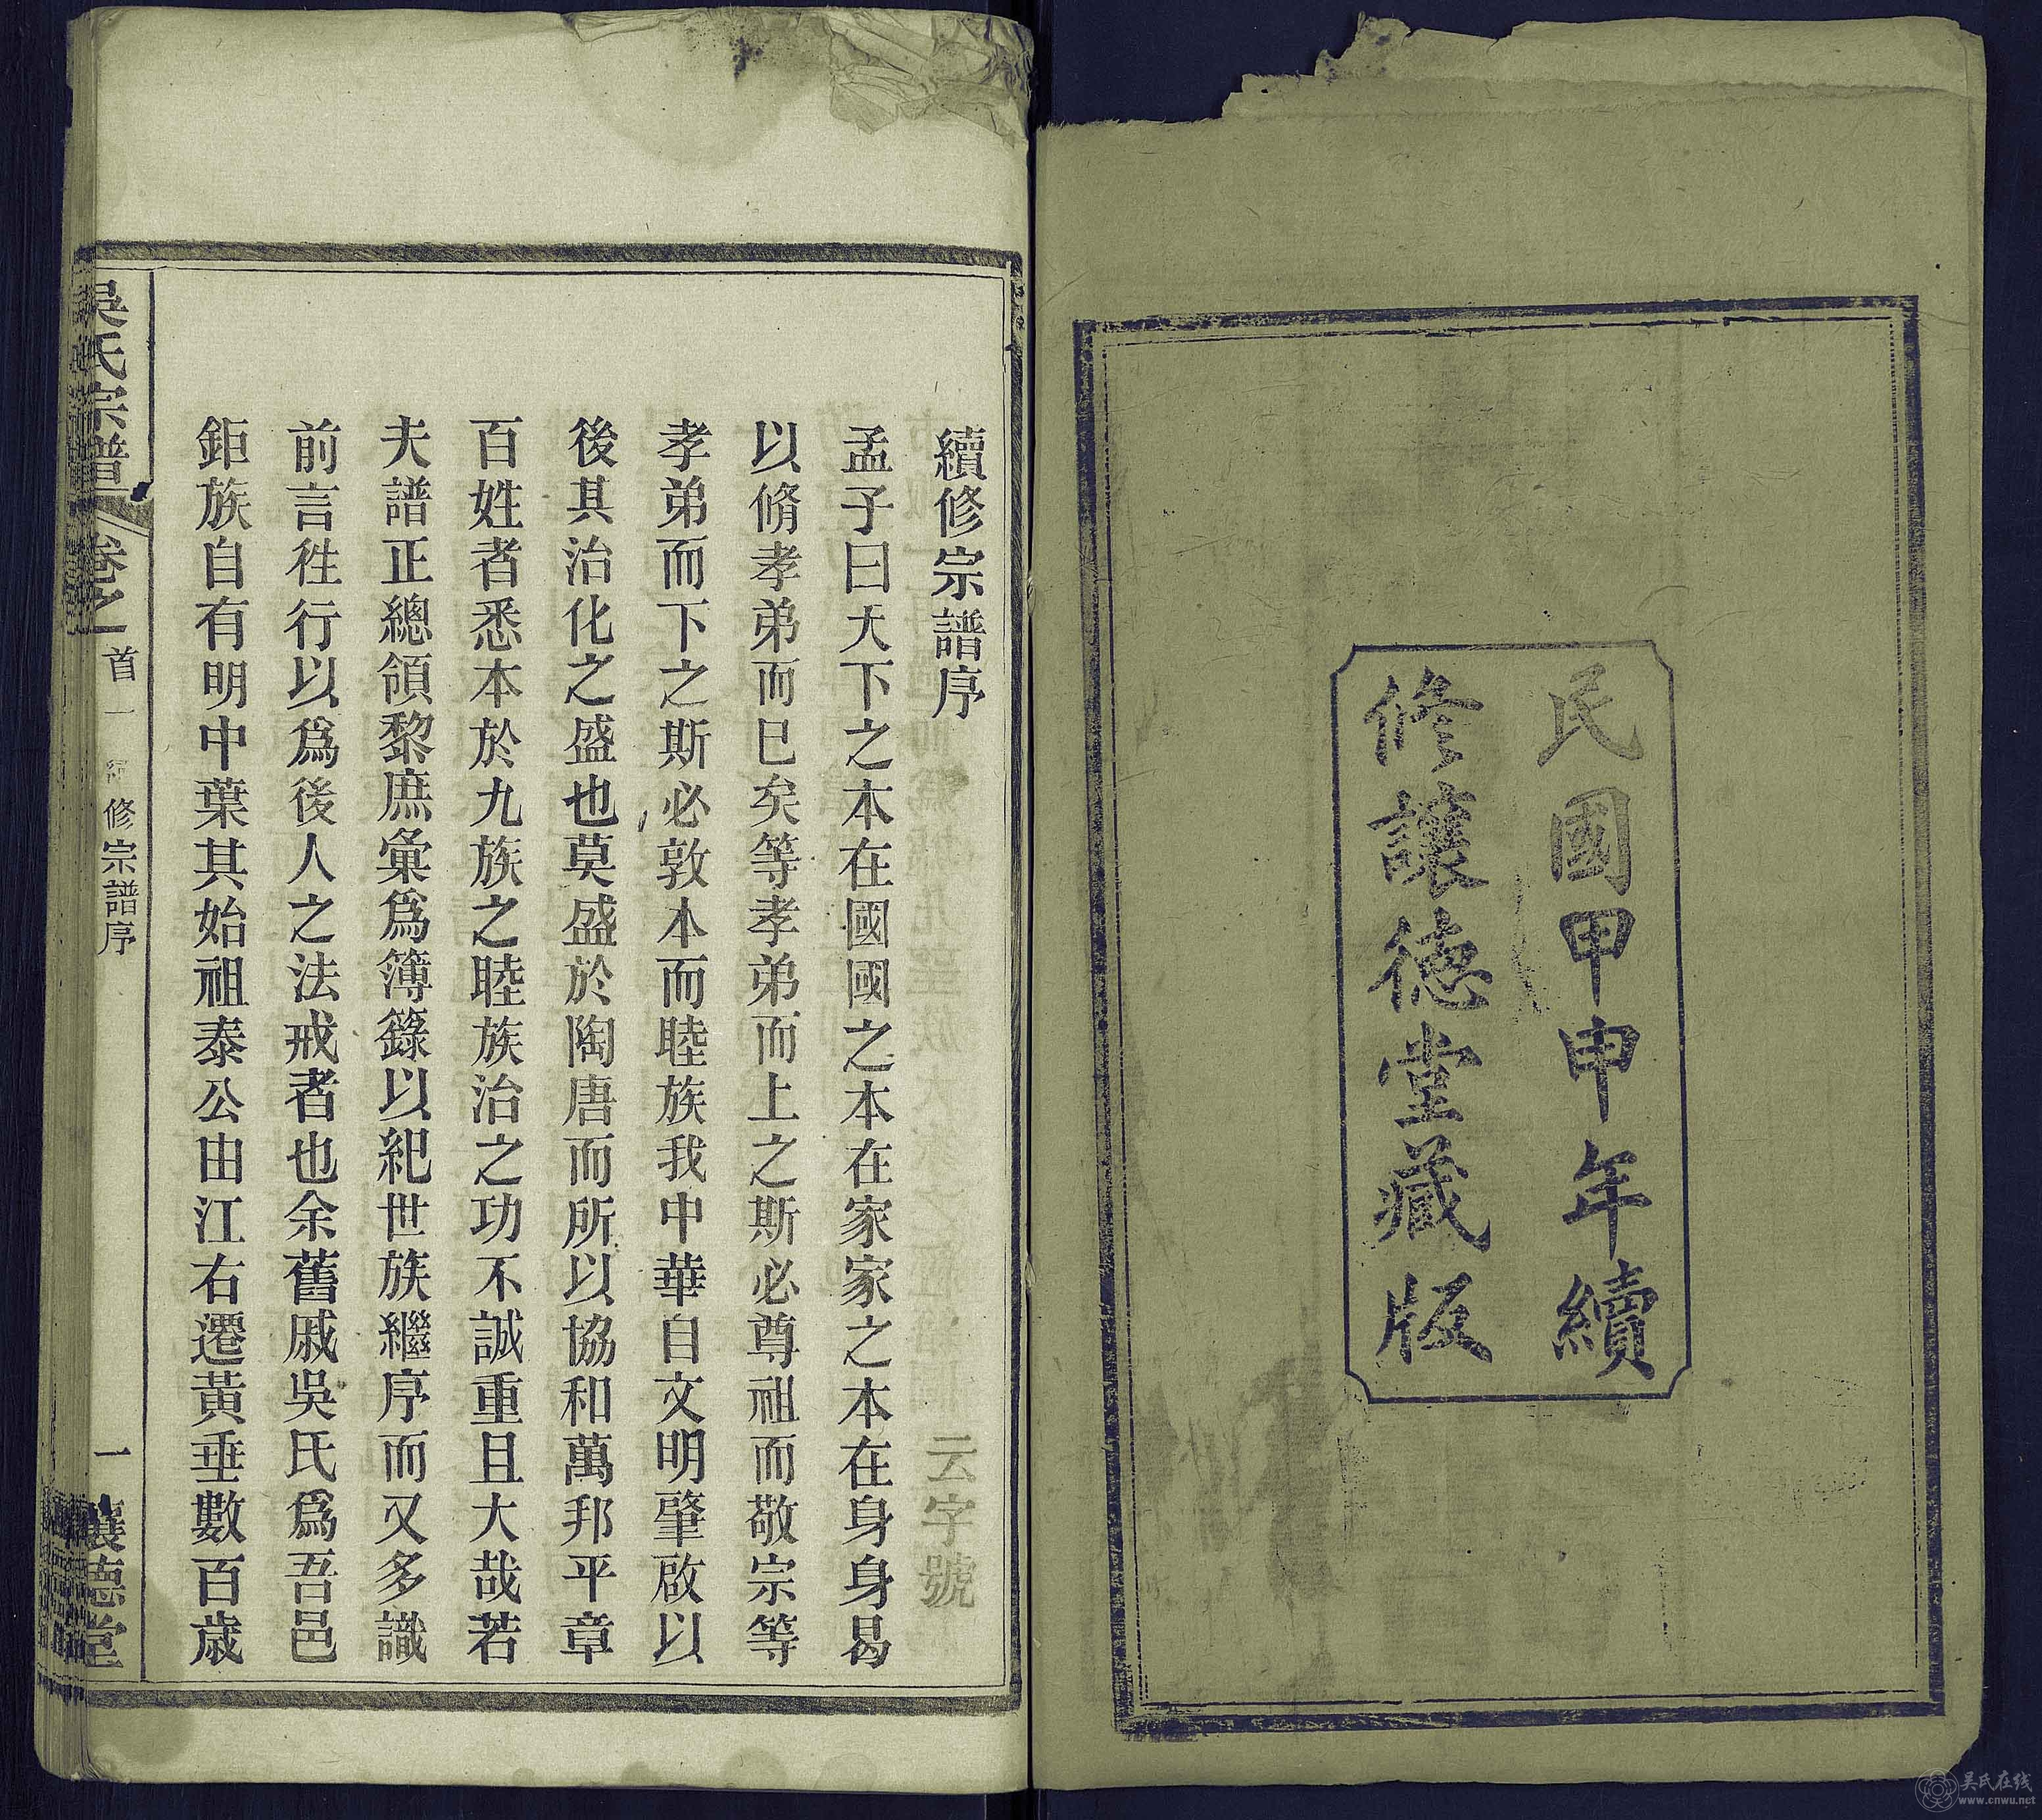 民國甲申年續
修讓德堂藏版
續修宗譜序
云字號
孟子曰天下之本在國國之本在家家之本在身身曷
以脩孝弟而已矣等孝弟而上之斯必尊祖而敬宗等
孝弟而下之斯必敦本而睦族我中華自文明肇啟以
後其治化之盛也莫盛於陶唐而所以協和萬邦平章
百姓者悉本於九族之睦族治之功不誠重且大哉若
夫譜正總領黎庶彙為簿籙以紀世族繼序而又多識
前言徃行以為後人之法戒者也余舊戚吳氏為吾邑
鉅族自有明中葉其始祖泰公由江右遷黃垂數百歲
吳氏宗譜
卷之一
首一
修宗譜序
一
讓德堂
吴氏在线
www.cnwu.net